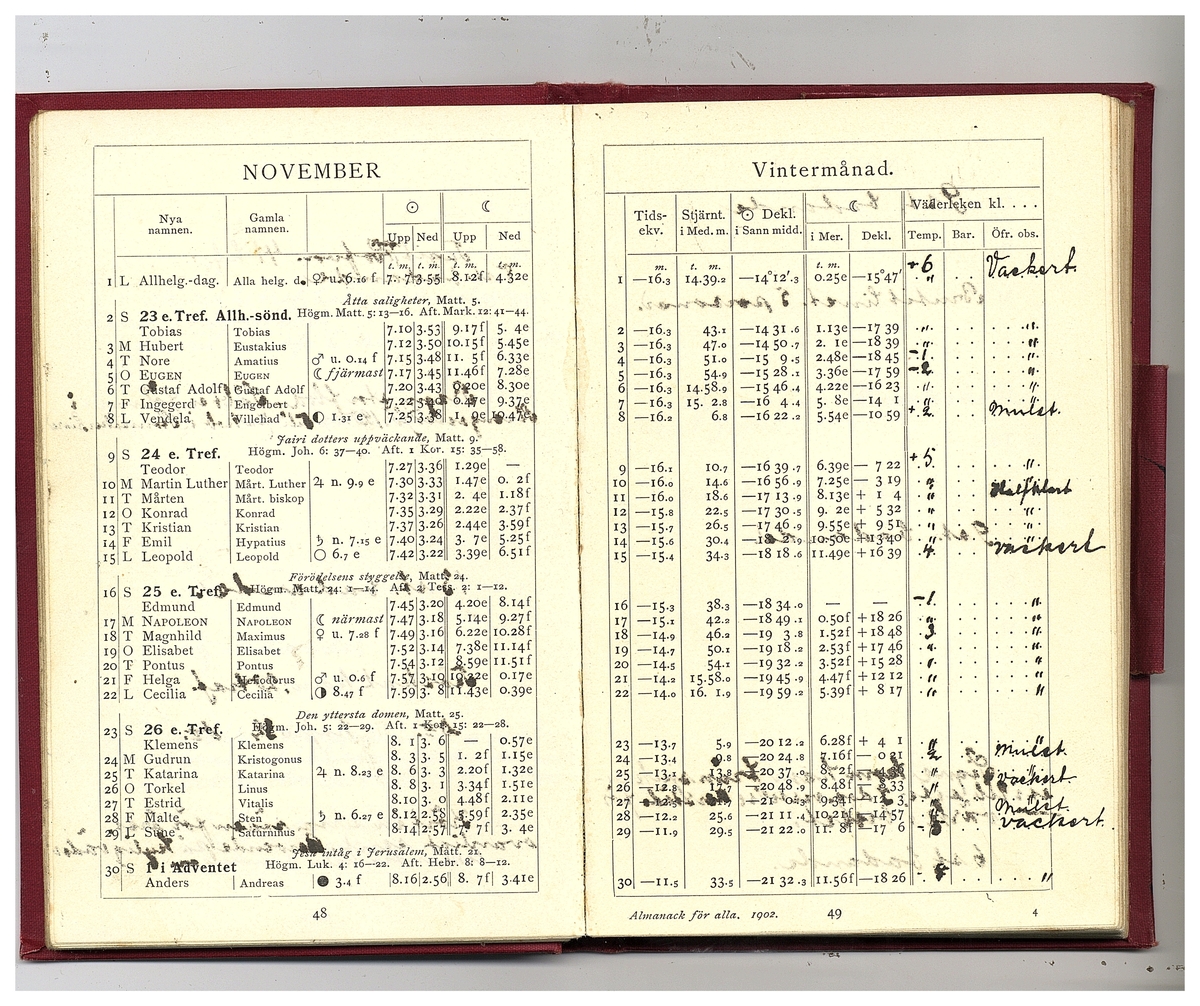 NOVEMBER
Nya namnen. Gamla namnen. ☉ ☾
Upp Ned Upp Ned
t. m. t. m. t. m. t. m.
1 L Allhelg.-dag. Alla helg. d. ♀ u. 6.16 f 7. 7 3.55 8.12f 4.32e
Åtta saligheter, Matt. 5.
2 S 23 e. Tref. Allh.-sönd. Högm. Matt. 5: 13—16. Aft. Mark. 12: 41—44.
Tobias Tobias 7.10 3.53 9.17f 5. 4e
3 M Hubert Eustakius 7.12 3.50 10.15f 5.45e
4 T Nore Amatius ♂ u. 0.14 f 7.15 3.48 11. 5f 6.33e
5 O EUGEN EUGEN ☾ fjärmast 7.17 3.45 11.46f 7.28e
6 T Gustaf Adolf Gustaf Adolf 7.20 3.43 0.20e 8.30e
7 F Ingegerd Engelbert 7.22 0.47e 9.37e
8 L Vendela Villehad ◐ 1.31 e 7.25 3.38 1. 9e 10.47e
Jairi dotters uppväckande, Matt. 9.
9 S 24 e. Tref. Högm. Joh. 6: 37—40. Aft. 1 Kor. 15: 35—58.
Teodor Teodor 7.27 3.36 1.29e —
10 M Martin Luther Mårt. Luther ♃ n. 9.9 e 7.30 3.33 1.47e 0. 2f
11 T Mårten Mårt. biskop 7.32 3.31 2. 4e 1.18f
12 O Konrad Konrad 7.35 3.29 2.22e 2.37f
13 T Kristian Kristian 7.37 3.26 2.44e 3.59f
14 F Emil Hypatius ♄ n. 7.15 e 7.40 3.24 3. 7e 5.25f
15 L Leopold Leopold ○ 6.7 e 7.42 3.22 3.39e 6.51f
Förödelsens styggelse, Matt. 24.
16 S 25 e. Tref. Högm. Matt. 24: 1—14. Aft. 2 Tess. 2: 1—12.
Edmund Edmund 7.45 3.20 4.20e 8.14f
17 M NAPOLEON NAPOLEON ☾ närmast 7.47 3.18 5.14e 9.27f
18 T Magnhild Maximus ♀ u. 7.28 f 7.49 3.16 6.22e 10.28f
19 O Elisabet Elisabet 7.52 3.14 7.38e 11.14f
20 T Pontus Pontus 7.54 3.12 8.59e 11.51f
21 F Helga Heliodorus ♂ u. 0.6 f 7.57 3.10 10.22e 0.17e
22 L Cecilia Cecilia ◑ 8.47 f 7.59 3. 8 11.43e 0.39e
Den yttersta domen, Matt. 25.
23 S 26 e. Tref. Högm. Joh. 5: 22—29. Aft. 1 Kor. 15: 22—28.
Klemens Klemens 8. 1 3. 6 — 0.57e
24 M Gudrun Kristogonus 8. 3 3. 5 1. 2f 1.15e
25 T Katarina Katarina ♃ n. 8.23 e 8. 6 3. 3 2.20f 1.32e
26 O Torkel Linus 8. 8 3. 1 3.34f 1.51e
27 T Estrid Vitalis 8.10 3. 0 4.48f 2.11e
28 F Malte Sten ♄ n. 6.27 e 8.12 2.58 5.59f 2.35e
29 L Sune Saturninus 8.14 2.57 7. 7f 3. 4e
Jesu intåg i Jerusalem, Matt. 21.
30 S 1 i Adventet Högm. Luk. 4: 16—22. Aft. Hebr. 8: 8—12.
Anders Andreas ● 3.4 f 8.16 2.56 8. 7f 3.41e
48
Vintermånad.
Tids-ekv. Stjärnt. i Med. m. ☉ Dekl. i Sann midd. ☾ Väderleken kl. . . . .
i Mer. Dekl. Temp. Bar. Öfr. obs.
m. t. m. t. m.
1 —16.3 14.39.2 —14°12'.3 0.25e —15°47' +6 Vackert.
2 —16.3 43.1 —14 31 .6 1.13e —17 39 " "
3 —16.3 47.0 —14 50 .7 2. 1e —18 39 " "
4 —16.3 51.0 —15 9 .5 2.48e —18 45 -1 "
5 —16.3 54.9 —15 28 .1 3.36e —17 59 -2 "
6 —16.3 14.58.9 —15 46 .4 4.22e —16 23 " "
7 —16.3 15. 2.8 —16 4 .4 5. 8e —14 1 " "
8 —16.2 6.8 —16 22 .2 5.54e —10 59 +2 Mulet.
9 —16.1 10.7 —16 39 .7 6.39e — 7 22 +5 "
10 —16.0 14.6 —16 56 .9 7.25e — 3 19 " "
11 —16.0 18.6 —17 13 .9 8.13e + 1 4 " Halfklart
12 —15.8 22.5 —17 30 .5 9. 2e + 5 32 " "
13 —15.7 26.5 —17 46 .9 9.55e + 9 51 " "
14 —15.6 30.4 10.50e +13 40 " "
15 —15.4 34.3 —18 18 .6 11.49e +16 39 4. vackert
16 —15.3 38.3 —18 34 .0 — — -1. "
17 —15.1 42.2 —18 49 .1 0.50f +18 26 " "
18 —14.9 46.2 —19 3 .8 1.52f +18 48 3. "
19 —14.7 50.1 —19 18 .2 2.53f +17 46 " "
20 —14.5 54.1 —19 32 .2 3.52f +15 28 " "
21 —14.2 15.58.0 —19 45 .9 4.47f +12 12 " "
22 —14.0 16. 1.9 —19 59 .2 5.39f + 8 17 " "
23 —13.7 5.9 —20 12 .2 6.28f + 4 1 " "
24 —13.4 9.8 —20 24 .8 7.16f — 0 21 " Mulet.
25 —13.1 13.8 —20 37 .0 " "
26 —12.8 17.7 —20 48 .9 8.48f " vackert.
27 —12.5 —21 0 .3 9.34f "
28 —12.2 25.6 —21 11 .4 10.21f —14 57 " Mulet.
29 —11.9 29.5 —21 22 .0 11. 8f —17 6 vackert.
30 —11.5 33.5 —21 32 .3 11.56f —18 26 "
Almanack för alla. 1902. 49 4